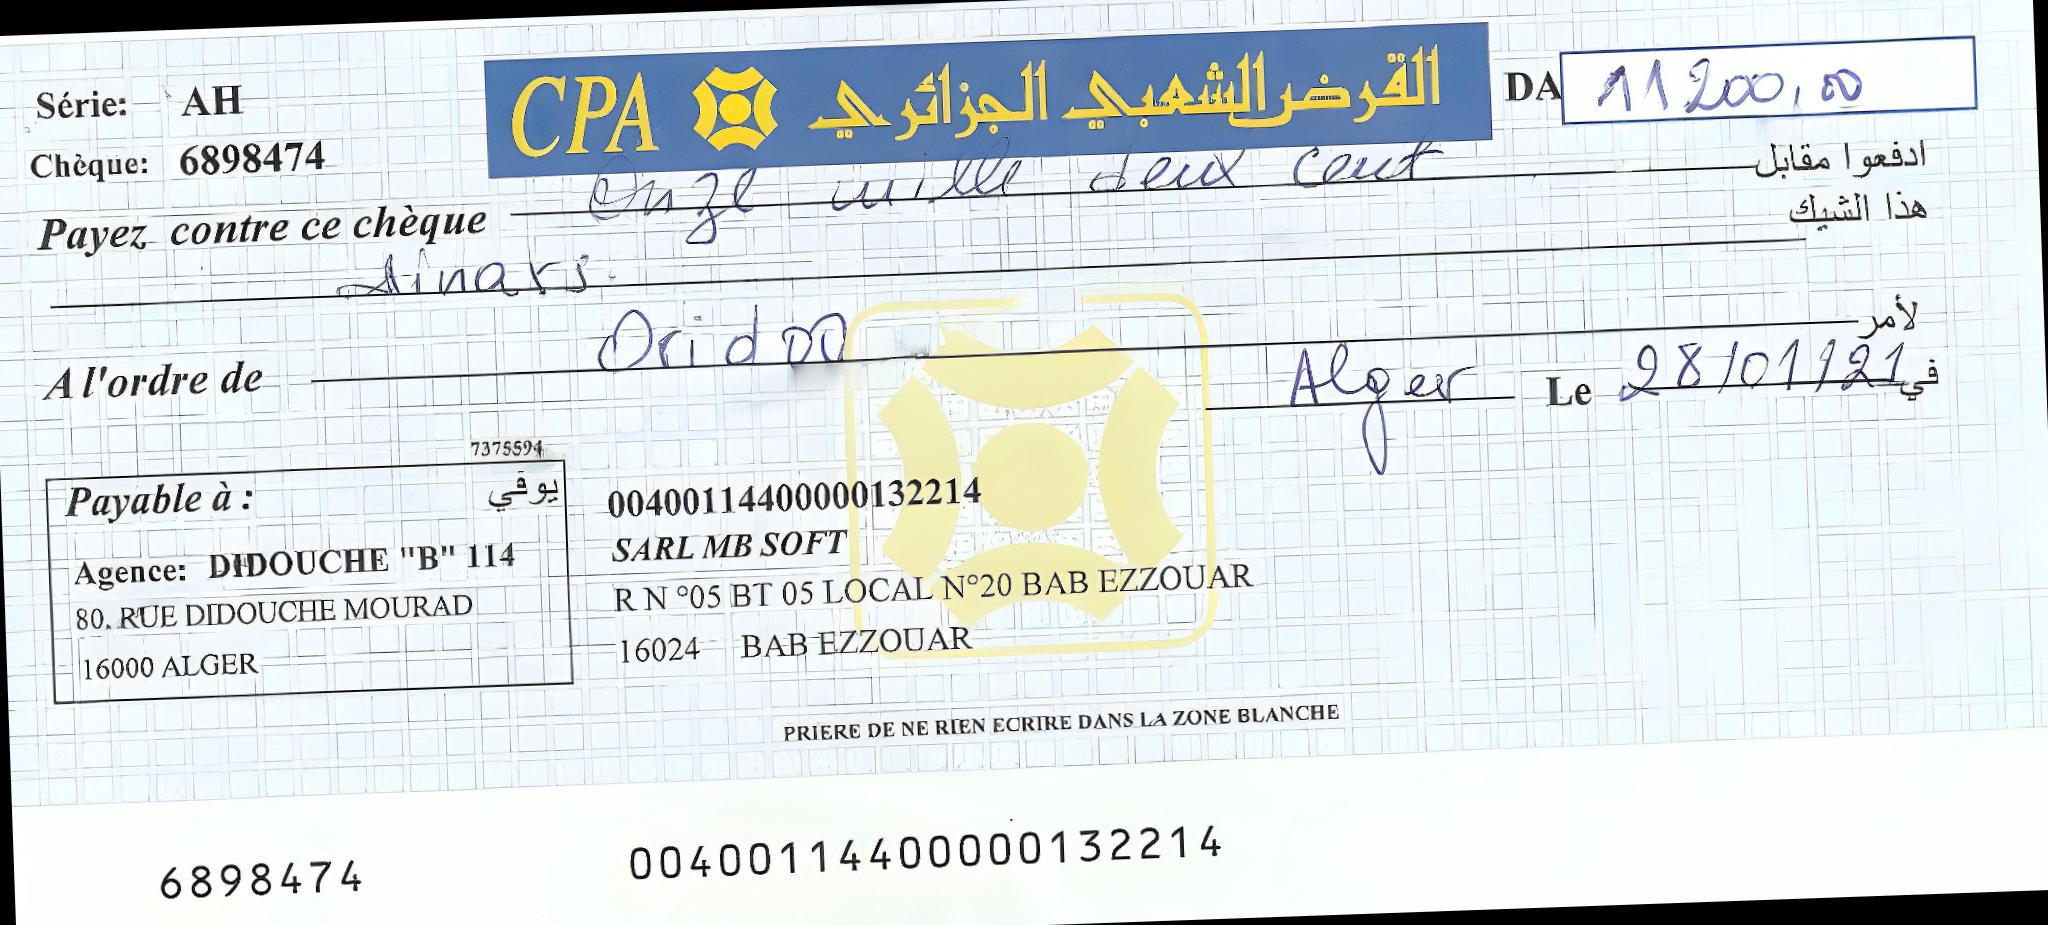 Série: AH
CPA القرض الشعبي الجزائري
DA 11 200,00
Chèque: 6898474
Payez contre ce chèque Onze mille deux cent ادفعوا مقابل
هذا الشيك
dinars.
A l'ordre de Oridoo لأمر
Alger Le 28/01/21 في
7375594
Payable à : يوفي
Agence: DIDOUCHE "B" 114
80. RUE DIDOUCHE MOURAD
16000 ALGER
00400114400000132214
SARL MB SOFT
R N °05 BT 05 LOCAL N°20 BAB EZZOUAR
16024 BAB EZZOUAR
PRIERE DE NE RIEN ECRIRE DANS LA ZONE BLANCHE
6898474 00400114400000132214